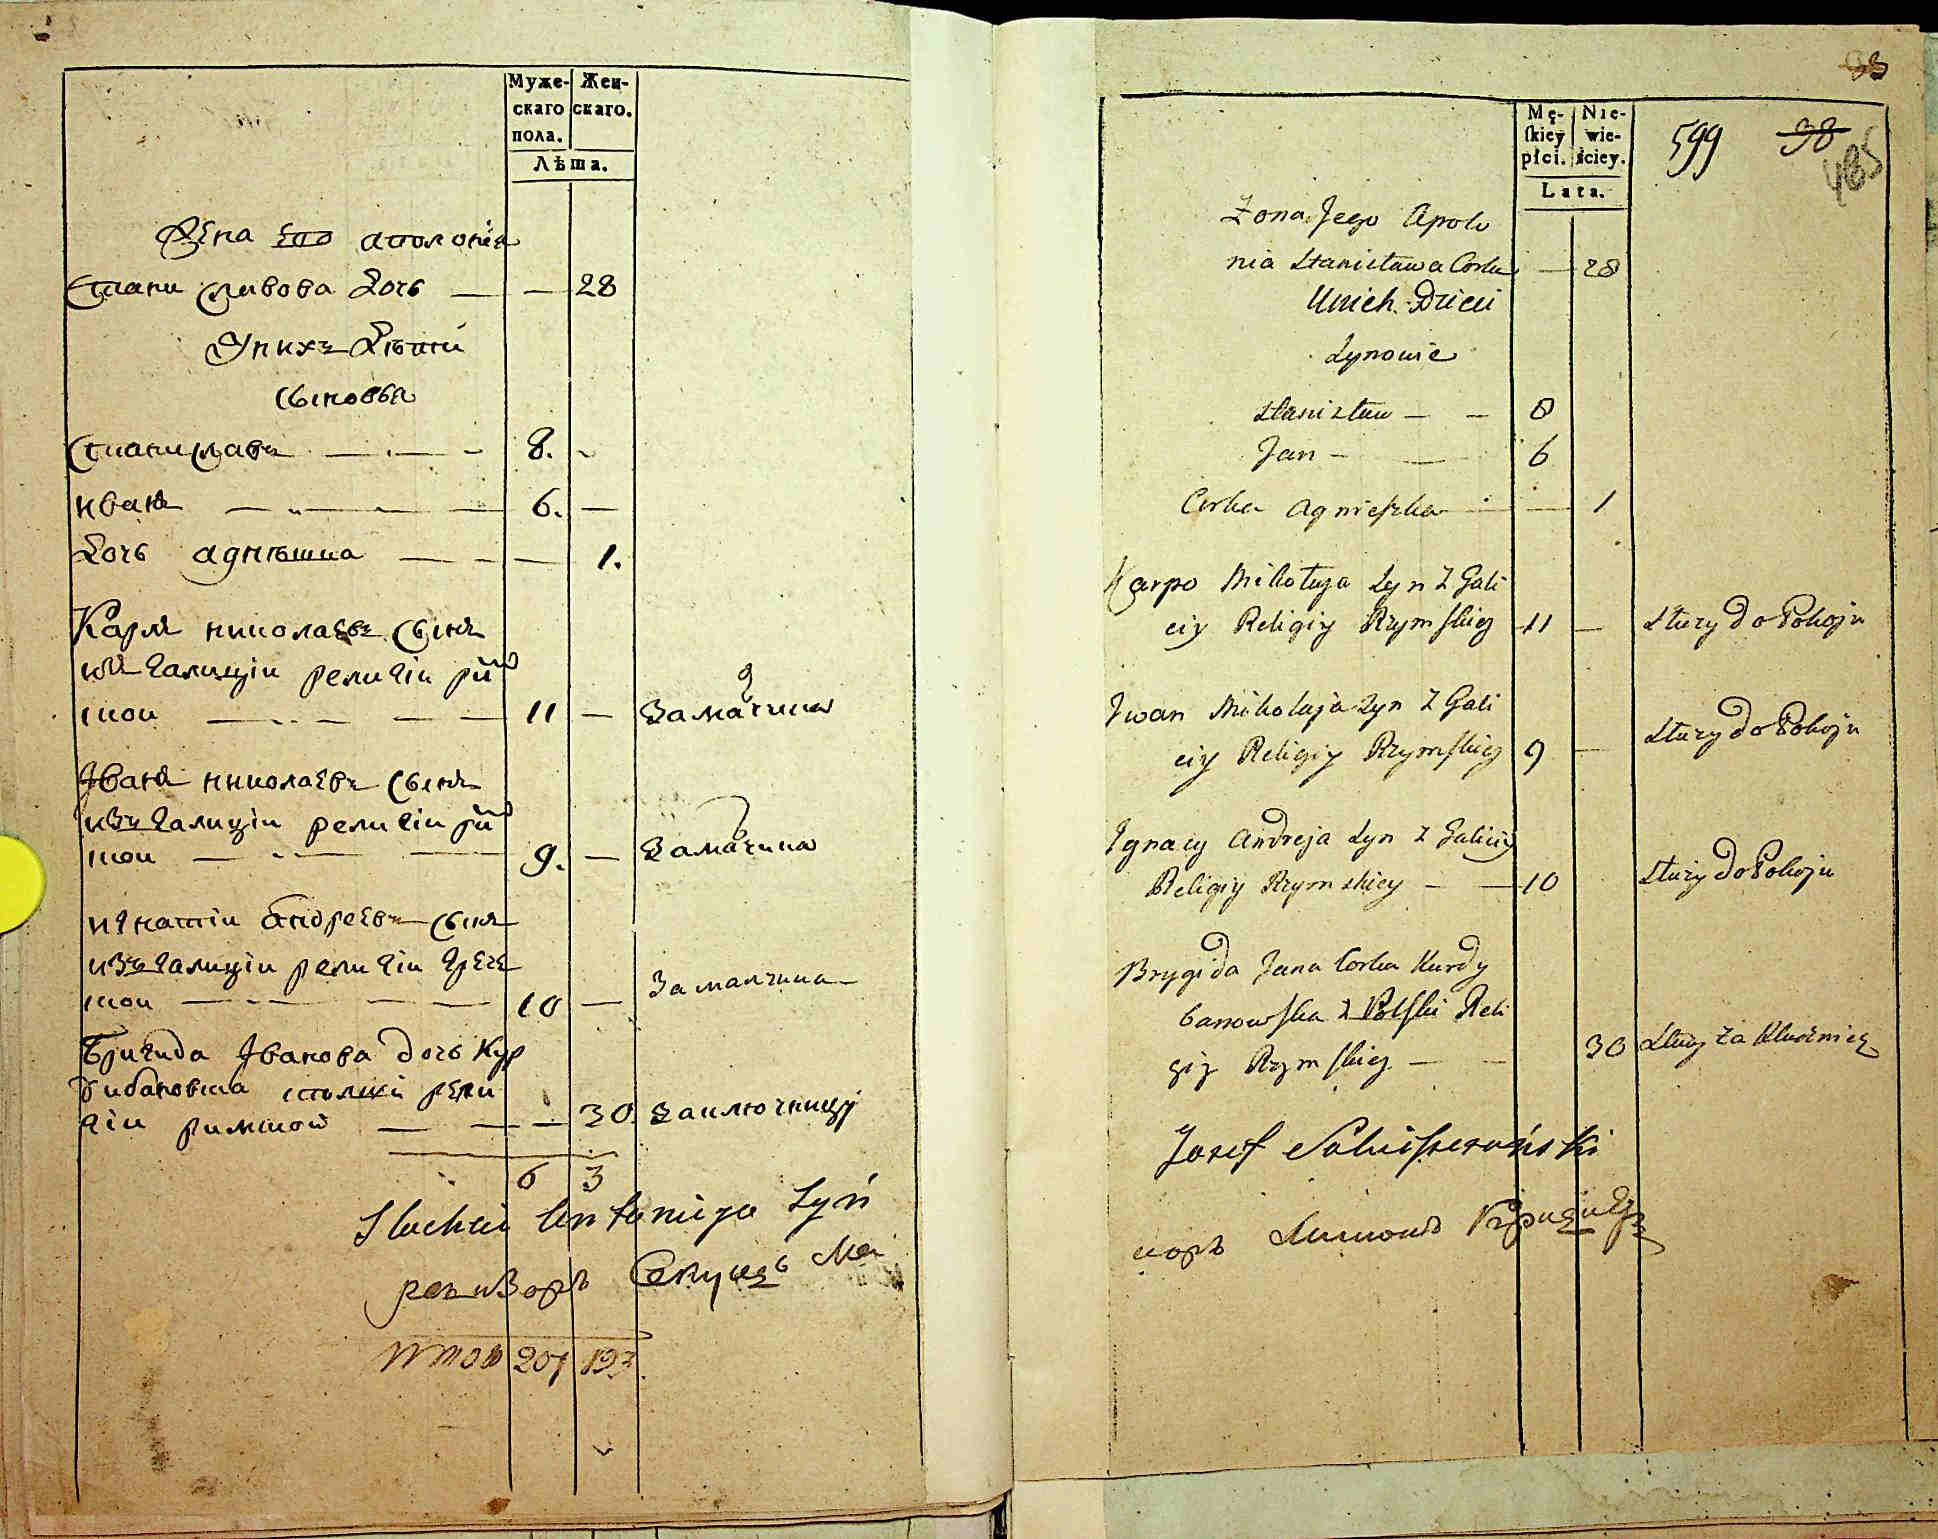 Муже-
скаго
пола.
Жен-
скаго.
Лѣта.
Жена Его аполонія
Станиславова дочь — — 28
Уних Дѣти
сыновья
Станиславъ — — 8. -
иванъ — — 6. —
дочь агнѣшка — — 1.
Карпъ николаевъ сынъ
изъ галиціи религіи рим
ской — — 11 — За малчика
Іванъ николаевъ сынъ
изъ галиціи религіи рим
ской — — 9. — За малчика
игнатіи андреевъ сынъ
изъ галиціи религіи грече
ской — — 10 — За малчика
Бригида Іванова дочь Кур
дибановска религіи
римской — — 30. за ключницу
6 3
Antoniego Syn
ревизоръ
итого 207 193
93
Mę-
skiey
płci.
Nie-
wie-
ściey.
Lata.
599 98
485
Zona Jego Apolo
nia Stanisława Corka — 28
Unich Dzieci
Synowie
Stanisław — — 8
Jan — — 6
Corka Agnieszka — — 1
Karpo Mikołaja Syn z Gali
ciy Religiy Rzymskiey 11 — Służy do Pokoju
Iwan Mikołaja Syn z Gali
ciy Religiy Rzymskiey 9 — Służy do Pokoju
Ignacy Andreja Syn z Galiciy
Religiy Rzymskiey — — 10 Służy do Pokoju
Brygida Jana Corka Kurdy
banowska z Polski Reli
giy Rzymskiey — — 30 Służy za Klucznicę
Jozef